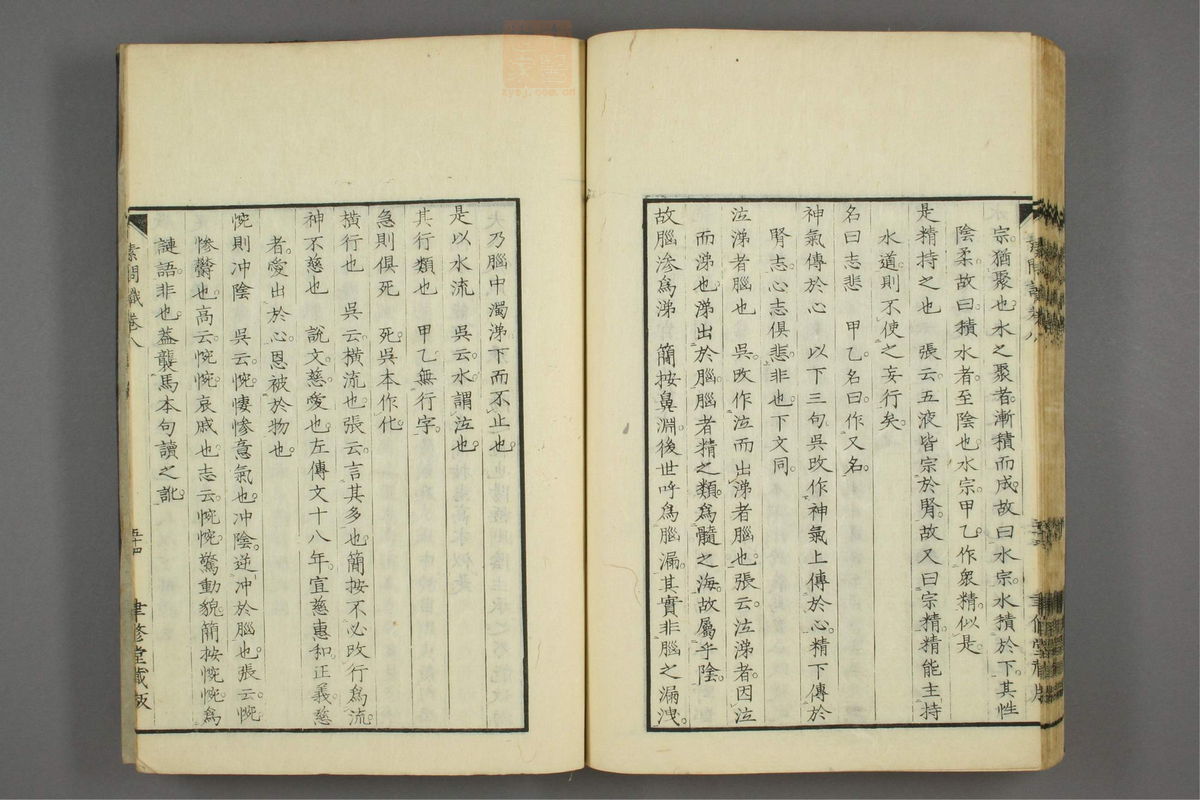 宗。猶聚也。水之聚者。漸積而成。故曰水宗。水積於下。其性
陰柔。故曰積水者。至陰也。水宗。甲乙。作衆精。似是。
是精持之也 張云。五液皆宗於腎。故又曰宗精。精能主持
水道。則不使之妄行矣。
名曰志悲 甲乙。名曰。作又名。
神氣傳於心 以下三句。吳改作神氣上傳於心。精下傳於
腎志。心志俱悲。非也。下文同。
泣涕者腦也 吳。改作泣而出涕者腦也。張云。泣涕者。因泣
而涕也。涕出於腦。腦者精之類。爲髓之海。故屬乎陰。
故腦滲爲涕 簡按鼻淵。後世呼爲腦漏。其實非腦之漏洩。
夫乃腦中濁涕。下而不止也。
是以水流 吳云。水謂泣也。
其行類也 甲乙。無行字。
急則俱死 死。吳本作化。
橫行也 吳云。橫流也。張云。言其多也。簡按不必改行爲流。
神不慈也 說文。慈。愛也。左傳文十八年。宣慈惠和。正義。慈
者。愛出於心。恩被於物也。
惋則冲陰 吳云。惋。悽慘意氣也。冲陰。逆冲於腦也。張云。惋
慘鬱也。高云。惋。惋。哀戚也。志云。惋惋。驚動貌。簡按惋惋。爲
謰語。非也。蓋襲馬本句讀之訛。
素問識卷八
五十四
聿修堂藏版